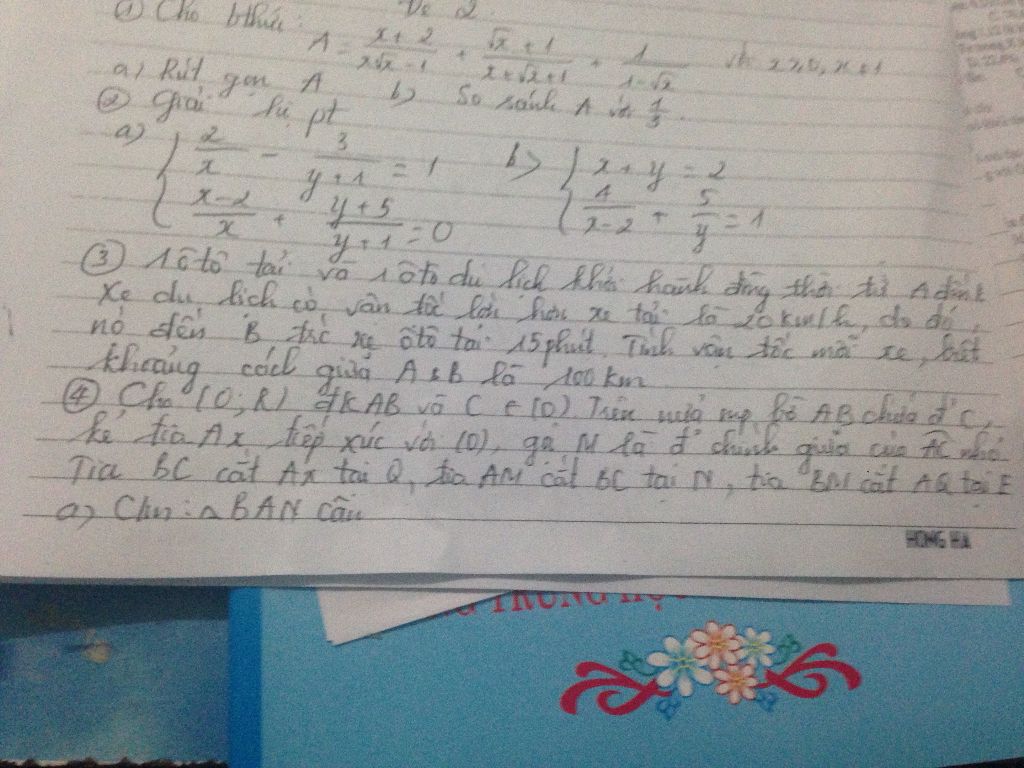 Đề 2
① Cho bthức:
A = \frac{x+2}{x\sqrt{x}-1} + \frac{\sqrt{x}+1}{x+\sqrt{x}+1} + \frac{1}{1-\sqrt{x}} với x ≥ 0, x ≠ 1
a) Rút gọn A b) So sánh A với \frac{1}{3}.
② Giải hệ pt
a) { \frac{2}{x} - \frac{3}{y+1} = 1 b) { x + y = 2
{ \frac{x-2}{x} + \frac{y+5}{y+1} = 0 { \frac{1}{x-2} + \frac{5}{y} = 1
③ 1 ôtô tải và 1 ôtô du lịch khởi hành đồng thời từ A đến B
Xe du lịch có vận tốc lớn hơn xe tải là 20 km/h, do đó,
nó đến B trc xe ôtô tải 15 phút. Tính vận tốc mỗi xe, biết
khoảng cách giữa A & B là 100 km
④ Cho (O; R) đk AB và C ∈ (O). Trên nửa mp bờ AB chứa đ' C,
kẻ tia Ax tiếp xúc với (O), gọi M là đ' chính giữa của AC nhỏ
Tia BC cắt Ax tại Q, tia AM cắt BC tại N, tia BM cắt AQ tại E
a) Cm: △ BAN cân
HONG HA